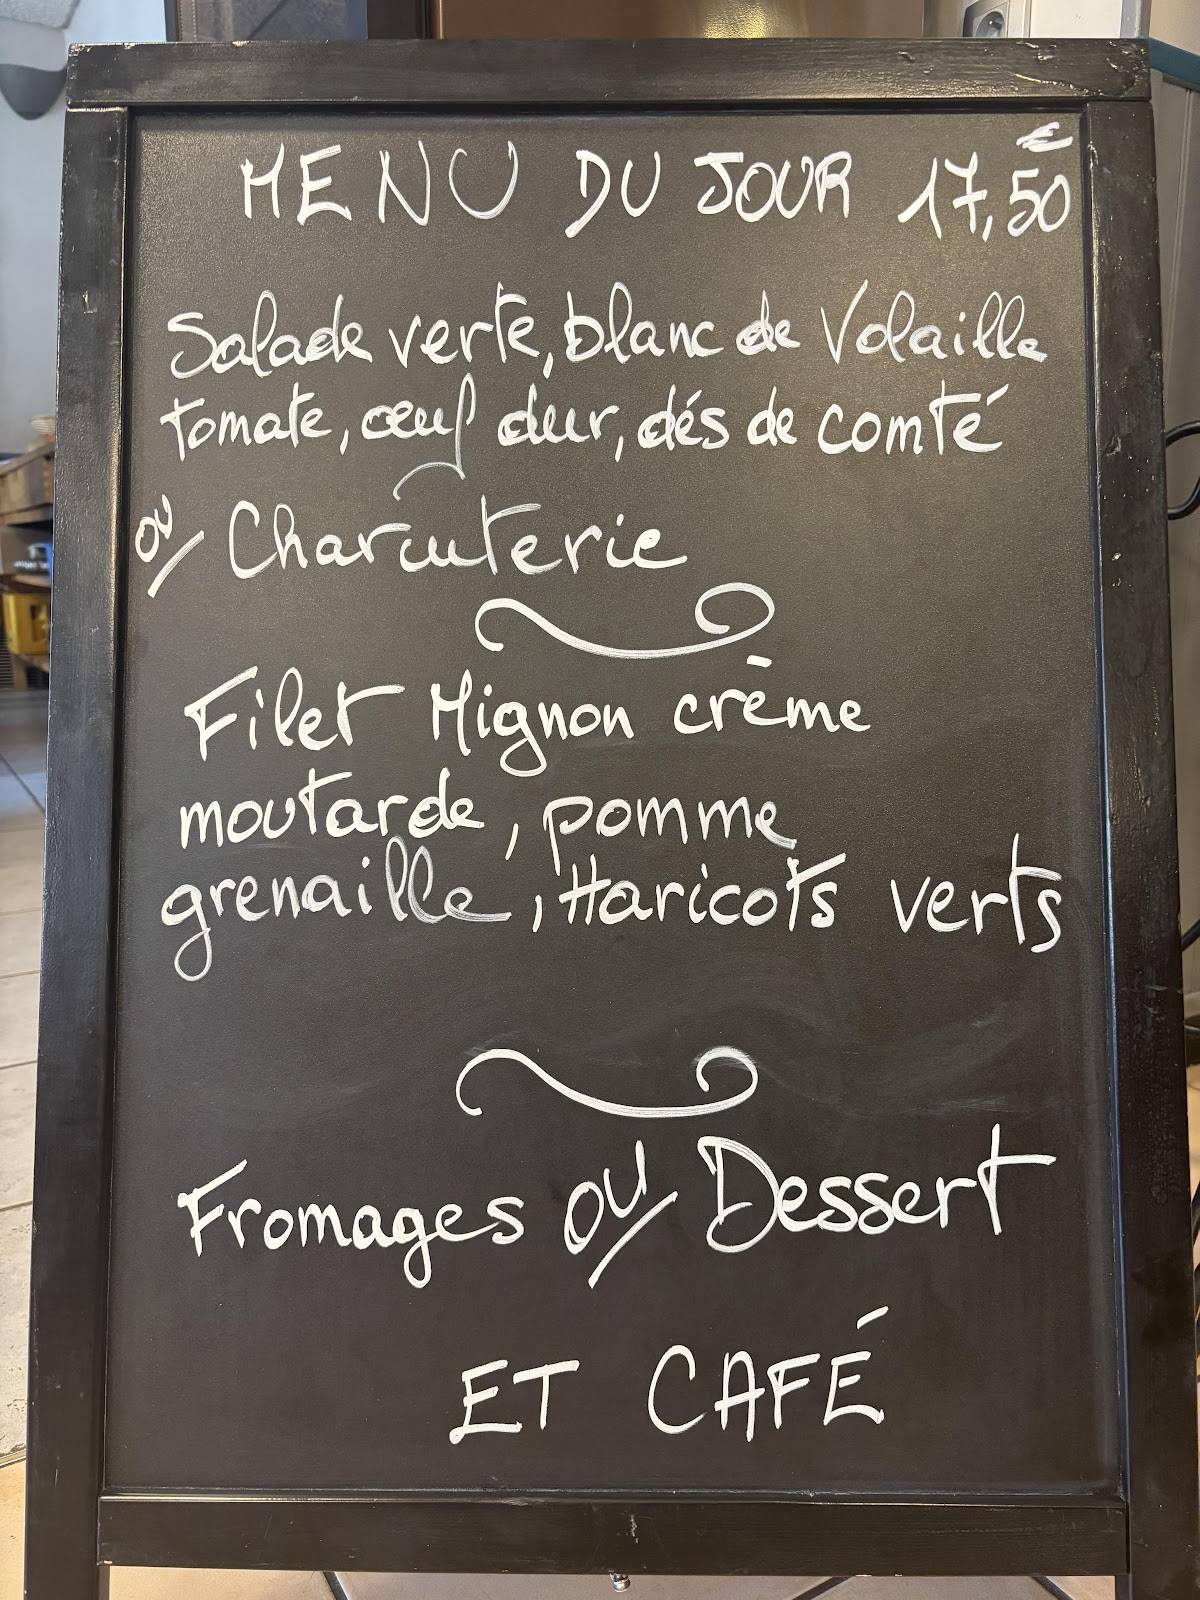 MENU DU JOUR 17,50€
Salade verte, blanc de Volaille
tomate, œuf dur, dés de comté
ou/ Charcuterie
Filet Mignon crème
moutarde, pomme
grenaille, Haricots verts
Fromages ou/ Dessert
ET CAFÉ